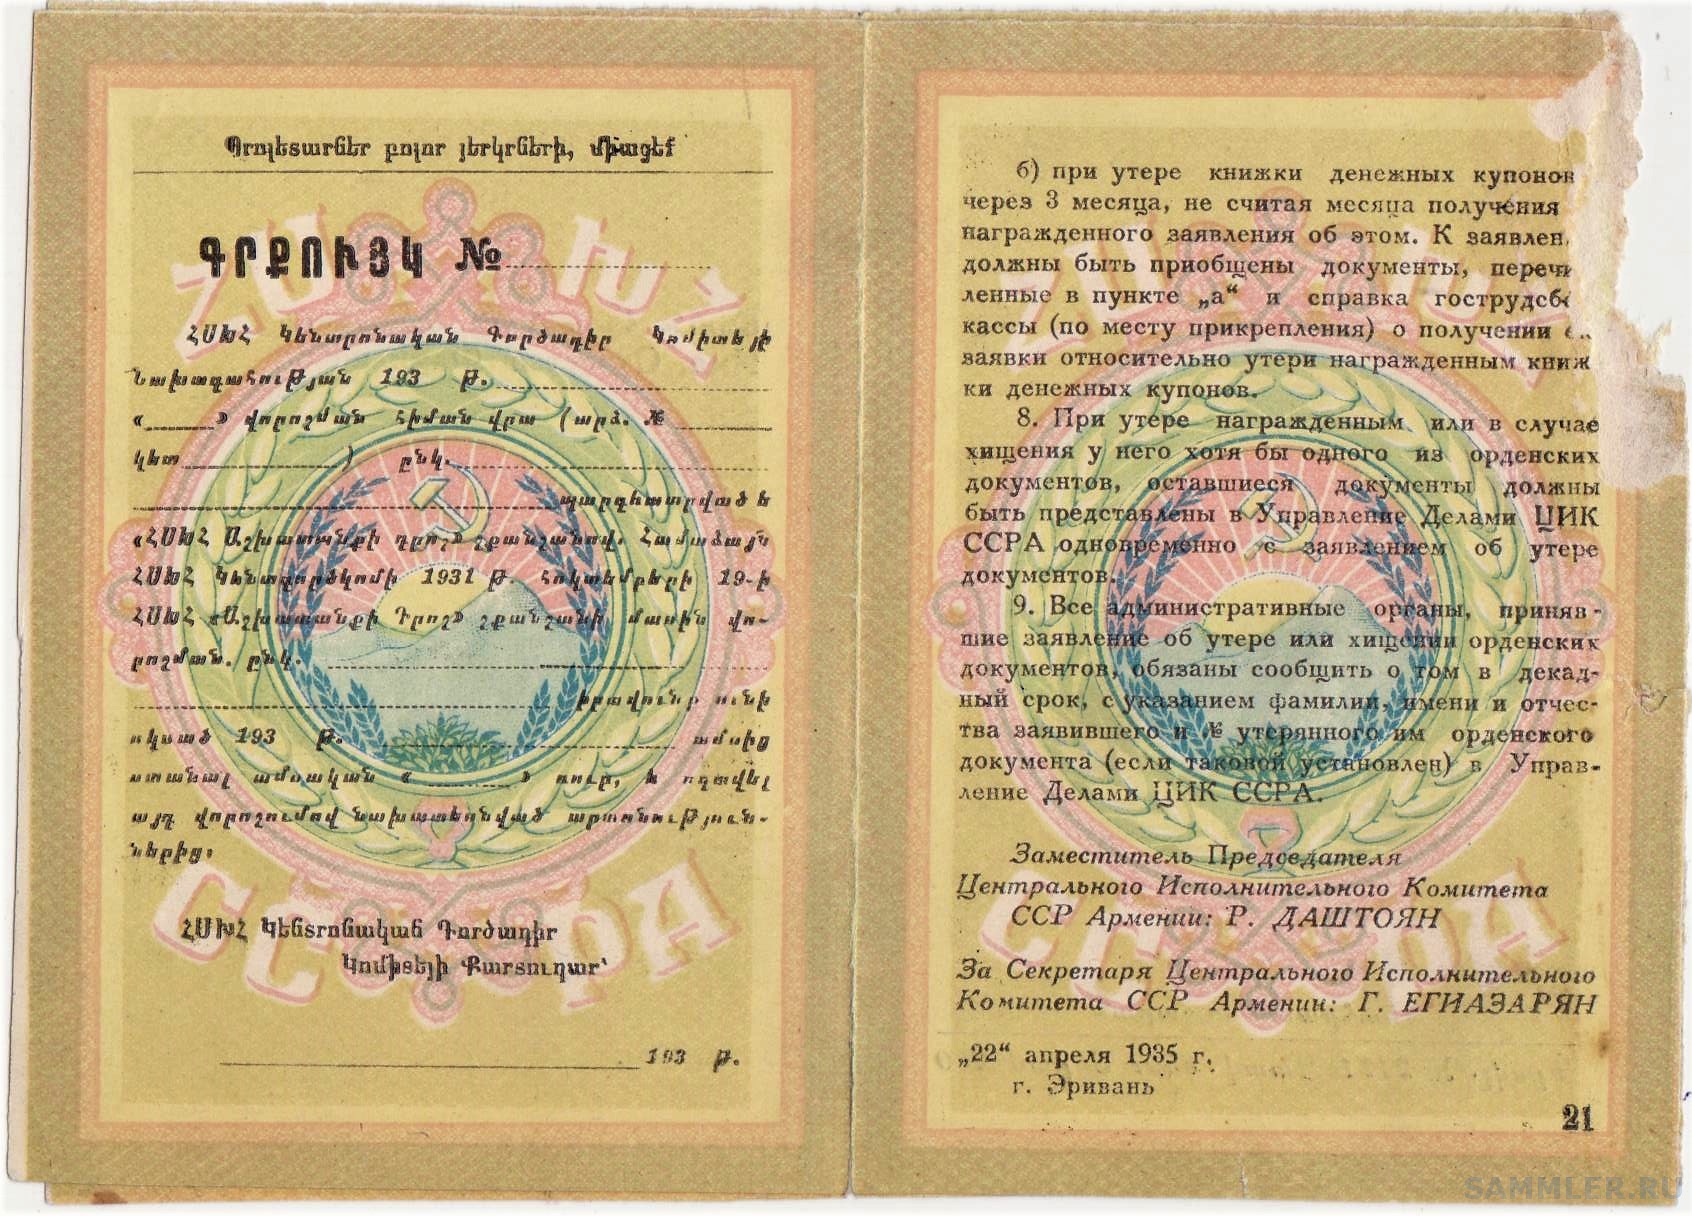 Պրոլետարներ բոլոր յերկրների, միացեք
ԳՐՔՈՒՅԿ №
ՀՍԽՀ Կենտրոնական Գործադիր Կոմիտեյի
Նախագահության 193 թ.
« » վորոշման հիման վրա (արձ. №
կետ ) ընկ.
պարգևատրված ե
«ՀՍԽՀ Աշխատանքի դրոշ» շքանշանով. Համաձայն
ՀՍԽՀ Կենտգործկոմի 1931 թ. հոկտեմբերի 19-ի
ՀՍԽՀ «Աշխատանքի Դրոշ» շքանշանի մասին վո-
րոշման. ընկ.
իրավունք ունի
սկսած 193 թ. ամսից
ստանալ ամսական « » ռուբ, և ոգտվել
այդ վորոշումով նախատեսնված արտոնություն-
ներից։
ՀՍԽՀ Կենտրոնական Գործադիր
Կոմիտեյի Քարտուղար՝
193 թ.
ՀՍ ԽՀ
ССРА
б) при утере книжки денежных купонов
через 3 месяца, не считая месяца получения
награжденного заявления об этом. К заявлен
должны быть приобщены документы, перечи
ленные в пункте „а“ и справка гострудсб
кассы (по месту прикрепления) о получении
заявки относительно утери награжденным книж
ки денежных купонов.
8. При утере награжденным или в случае
хищения у него хотя бы одного из орденских
документов, оставшиеся документы должны
быть представлены в Управление Делами ЦИК
ССРА одновременно с заявлением об утере
документов.
9. Все административные органы, приняв-
шие заявление об утере или хищении орденских
документов, обязаны сообщить о том в декад-
ный срок, с указанием фамилии, имени и отчес-
тва заявившего и № утерянного им орденского
документа (если таковой установлен) в Управ-
ление Делами ЦИК ССРА.
Заместитель Председателя
Центрального Исполнительного Комитета
ССР Армении: Р. ДАШТОЯН
За Секретаря Центрального Исполнительного
Комитета ССР Армении: Г. ЕГИАЗАРЯН
„22“ апреля 1935 г.
г. Эривань
21
SAMMLER.RU